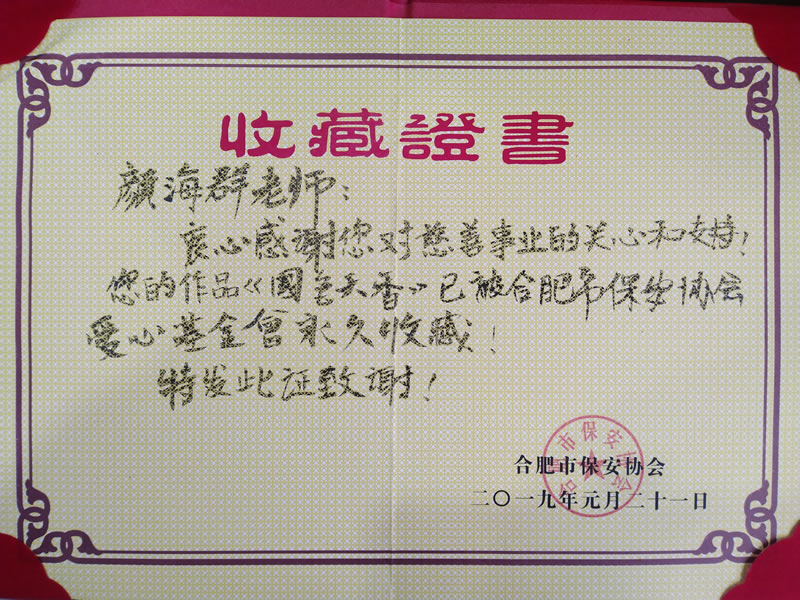 收藏證書
顏海群老师：
衷心感谢您对慈善事业的关心和支持！
您的作品《國色天香》已被合肥市保安协会
爱心基金會永久收藏！
特发此证致谢！
合肥市保安协会
二〇一九年元月二十一日
合肥市保安协会